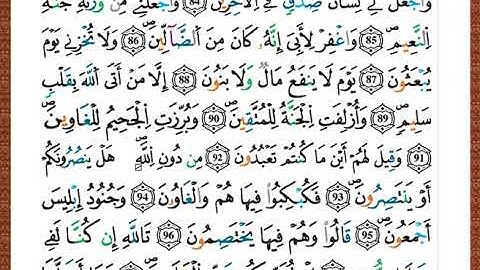 وَاجْعَل لِّي لِسَانَ صِدْقٍ فِي الْآخِرِينَ ۝84 وَاجْعَلْنِي مِن وَرَثَةِ جَنَّةِ
النَّعِيمِ ۝85 وَاغْفِرْ لِأَبِي إِنَّهُ كَانَ مِنَ الضَّالِّينَ ۝86 وَلَا تُخْزِنِي يَوْمَ
يُبْعَثُونَ ۝87 يَوْمَ لَا يَنفَعُ مَالٌ وَلَا بَنُونَ ۝88 إِلَّا مَنْ أَتَى اللَّهَ بِقَلْبٍ
سَلِيمٍ ۝89 وَأُزْلِفَتِ الْجَنَّةُ لِلْمُتَّقِينَ ۝90 وَبُرِّزَتِ الْجَحِيمُ لِلْغَاوِينَ
۝91 وَقِيلَ لَهُمْ أَيْنَ مَا كُنتُمْ تَعْبُدُونَ ۝92 مِن دُونِ اللَّهِ هَلْ يَنصُرُونَكُمْ
أَوْ يَنتَصِرُونَ ۝93 فَكُبْكِبُوا فِيهَا هُمْ وَالْغَاوُونَ ۝94 وَجُنُودُ إِبْلِيسَ
أَجْمَعُونَ ۝95 قَالُوا وَهُمْ فِيهَا يَخْتَصِمُونَ ۝96 تَاللَّهِ إِن كُنَّا لَفِي